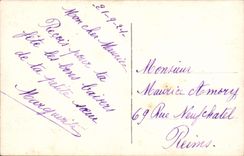 21-9-21
Mon cher Maurice
Reçois pour ta
fête les bons baisers
de ta petite sœur
Marguerite
Monsieur
Maurice Amory
69 Rue Neufchatel
Reims.